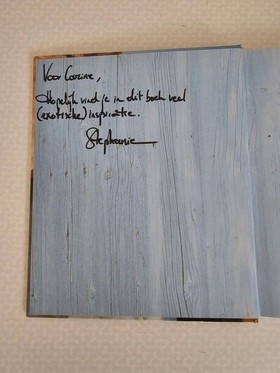 Voor Corine,
Hopelijk vind je in dit boek veel
(exotische) inspiratie.
Stephanie